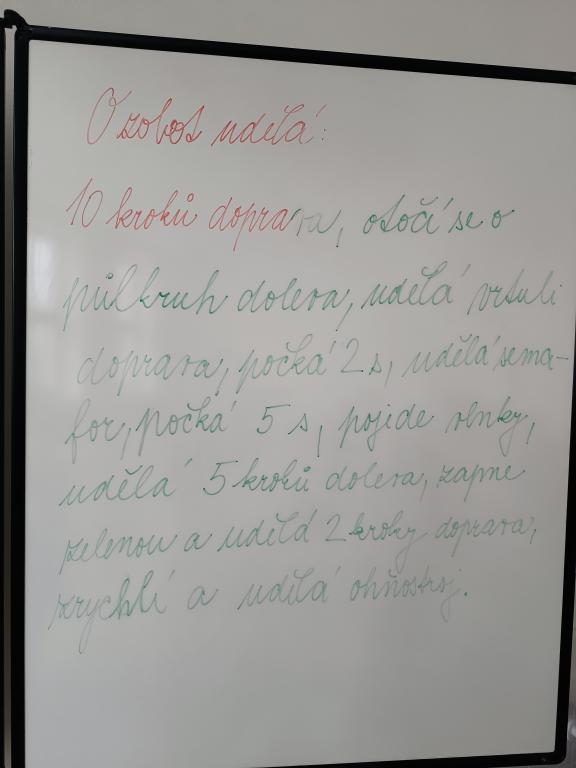 Ozobot udělá:
10 kroků doprava, otočí se o
půlkruh doleva, udělá vrtuli
doprava, počká 2 s, udělá sema-
for, počká 5 s, pojide vlnky,
udělá 5 kroků doleva, zapne
zelenou a udělá 2 kroky doprava,
zrychlí a udělá ohňostroj.